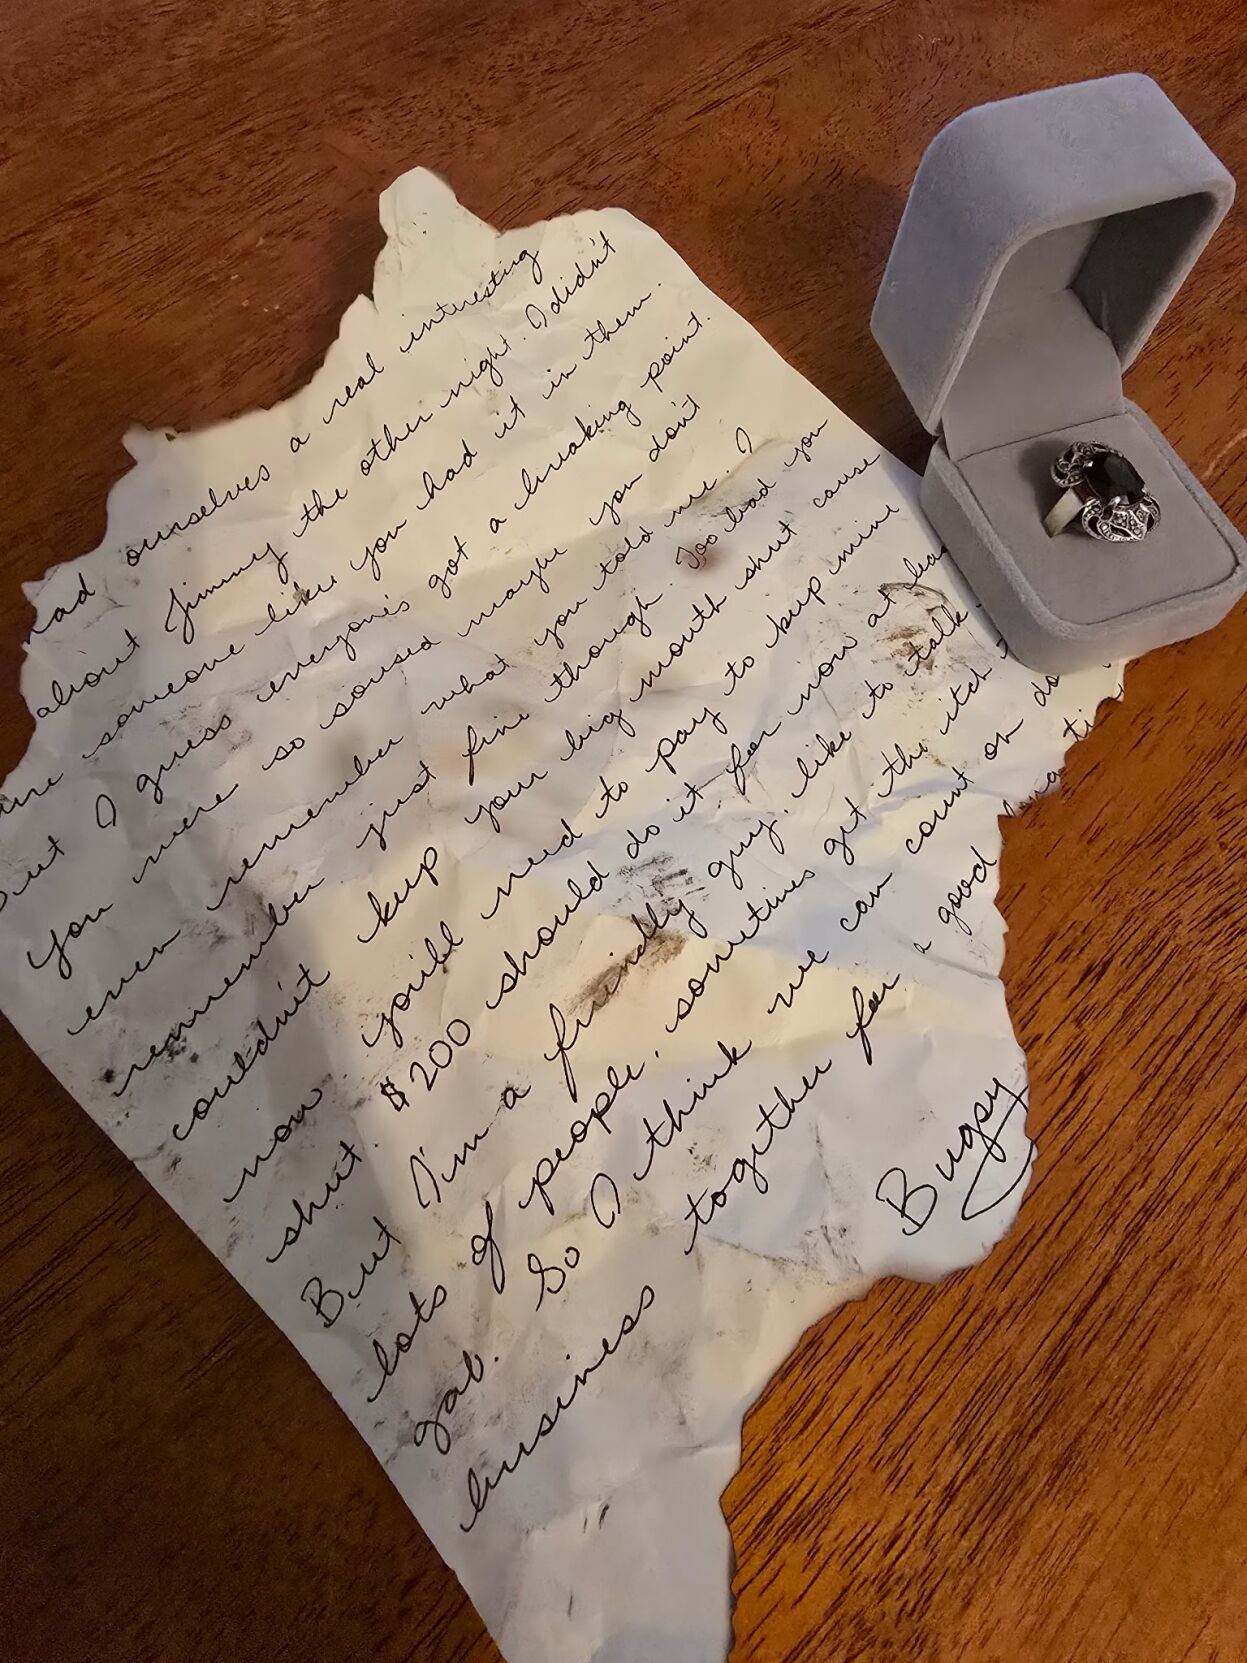 had ourselves a real interesting
about Jimmy the other night. I didn't
someone like you had it in them.
But I guess everyone's got a breaking point.
You were so soused maybe you don't
even remember what you told me. I
remember just fine though. Too bad you
couldn't keep your big mouth shut cause
now you'll need to pay to keep mine
shut. $200 should do it for now at
But I'm a friendly guy, like to talk
lots of people, sometimes get the itch
gab. So I think we can count on
business together for a good
Bugsy